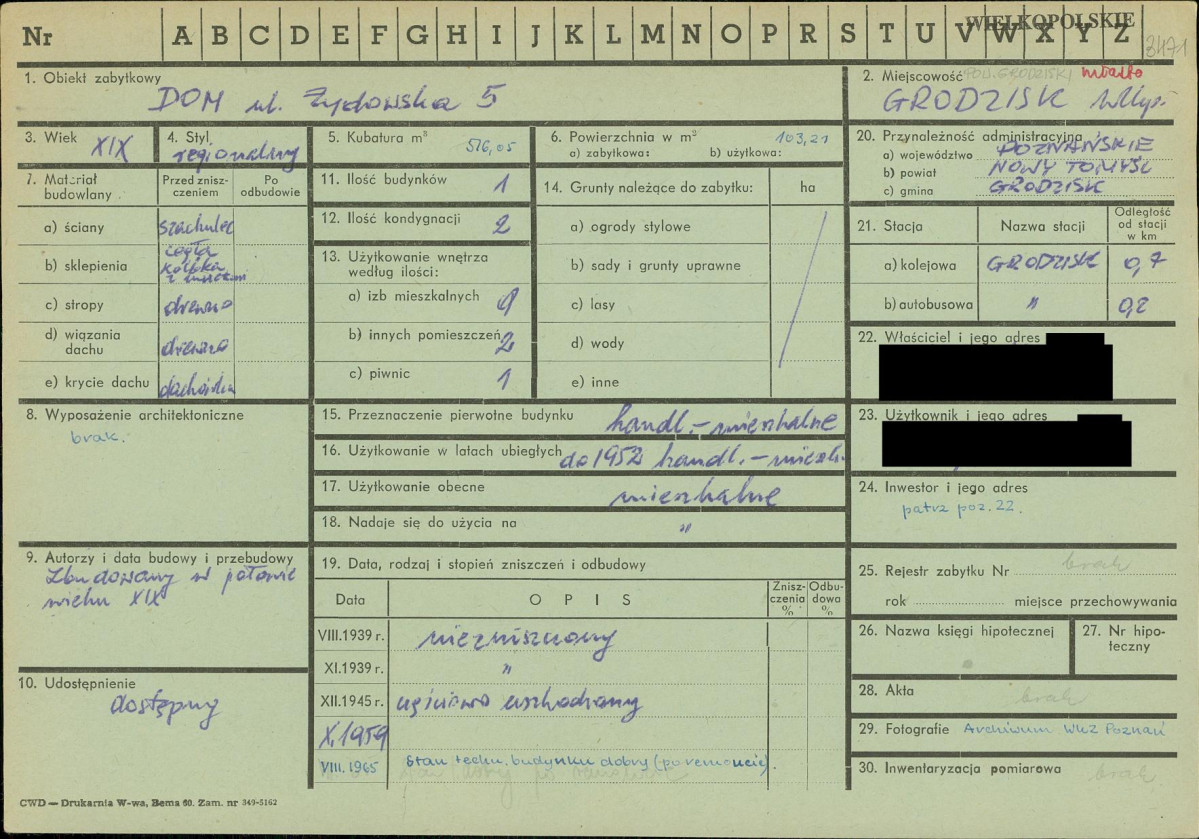 Nr A B C D E F G H I J K L M N O P R S T U V W X Y Z
WIELKOPOLSKIE
3471
1. Obiekt zabytkowy
DOM ul. Żydowska 5
2. Miejscowość POW. GRODZISKI miasto
GRODZISK Wlkp.
3. Wiek XIX
4. Styl. regionalny
5. Kubatura m³ 516,05
6. Powierzchnia w m² 103,21
a) zabytkowa: b) użytkowa:
20. Przynależność administracyjna
a) województwo POZNAŃSKIE
b) powiat NOWY TOMYŚL
c) gmina GRODZISK
7. Materiał budowlany
Przed zniszczeniem
Po odbudowie
a) ściany szachulec cegła
b) sklepienia kolebka z
c) stropy drewno
d) wiązania dachu drewno
e) krycie dachu dachówka
11. Ilość budynków 1
12. Ilość kondygnacji 2
13. Użytkowanie wnętrza według ilości:
a) izb mieszkalnych
b) innych pomieszczeń 2
c) piwnic 1
14. Grunty należące do zabytku: ha
a) ogrody stylowe
b) sady i grunty uprawne
c) lasy
d) wody
e) inne
21. Stacja Nazwa stacji Odległość od stacji w km
a) kolejowa GRODZISK 0,7
b) autobusowa " 0,2
22. Właściciel i jego adres
23. Użytkownik i jego adres
8. Wyposażenie architektoniczne
brak.
15. Przeznaczenie pierwotne budynku handl.-mieszkalne
16. Użytkowanie w latach ubiegłych do 1952 handl.-mieszk.
17. Użytkowanie obecne mieszkalne
18. Nadaje się do użycia na "
24. Inwestor i jego adres
patrz poz. 22.
9. Autorzy i data budowy i przebudowy
Zbudowany w połowie
wieku XIX
19. Data, rodzaj i stopień zniszczeń i odbudowy
Data OPIS Zniszczenia % Odbudowa %
VIII.1939 r. niezniszczony
XI.1939 r. "
XII.1945 r. częściowo uszkodzony
X.1959
VIII.1965 stan techn. budynku dobry (po remoncie).
25. Rejestr zabytku Nr brak
rok miejsce przechowywania
26. Nazwa księgi hipotecznej
27. Nr hipoteczny
10. Udostępnienie
dostępny
28. Akta brak
29. Fotografie Archiwum WKZ Poznań
30. Inwentaryzacja pomiarowa brak
CWD — Drukarnia W-wa, Bema 60. Zam. nr 349-5162